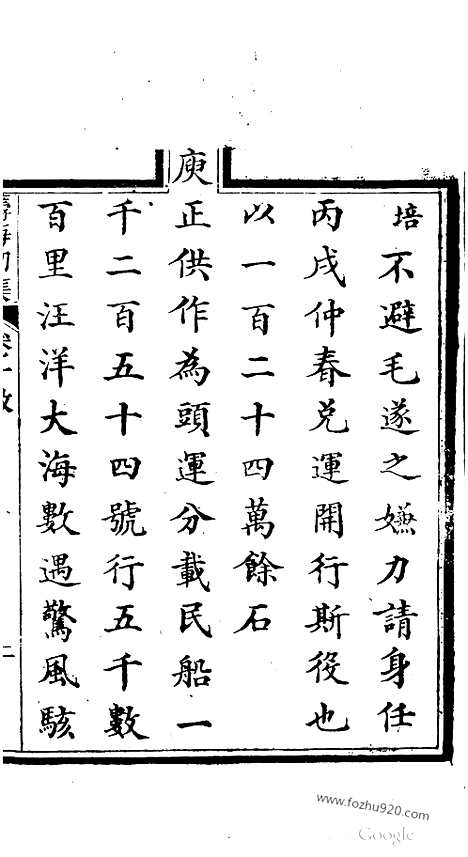 培不避毛遂之嫌力請身任
丙戌仲春兌運開行斯役也
以一百二十四萬餘石
庾正供作為頭運分載民船一
千二百五十四號行五千數
百里汪洋大海數遇驚風駭
www.fozhu920.com
Google